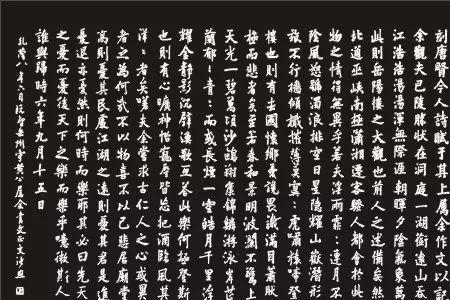 刻唐賢今人詩賦于其上屬余作文以記
余觀夫巴陵勝狀在洞庭一湖銜遠山吞
江浩浩湯湯渾無際涯朝暉夕陰氣象萬
此則岳陽樓之大觀也前人之述備矣然
北通巫峽南極瀟湘遷客騷人都會於此
物之情得無異乎若夫淫雨霏:連月不
陰風怒號濁浪排空日星隱耀山嶽潛形
旅不行檣傾楫摧薄暮冥:虎嘯猿啼登
樓也則有去國懷鄉憂讒畏譏滿目蕭然
極而悲者矣至若春和景明波瀾不驚上
天光一碧萬頃沙鷗翔集錦鱗游泳岸芷
蘭郁青:而或長煙一空皓月千里浮
耀金靜影沉璧漁歌互答此樂何極登斯
也則有心曠神怡寵辱皆忘把酒臨風其
洋:者矣嗟夫余嘗求古仁人之心或異
者之為何哉不以物喜不以己悲居廟堂
高則憂其民處江湖之遠則憂其君是進
憂退亦憂然則何時而樂耶其必曰先天
之憂而憂後天下之樂而樂乎噫微斯人
誰與歸時六年九月十五日
乾隆八年六月